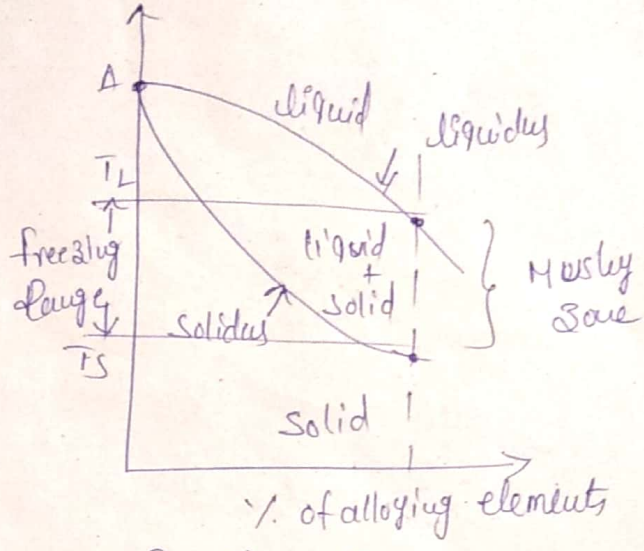 A
liquid
liquidus
TL
freezing
Range
liquid
+
solid
Mushy
Zone
solidus
TS
Solid
% of alloying elements